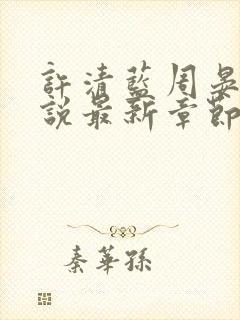 許清藍周晏
說最新章節
秦華孫